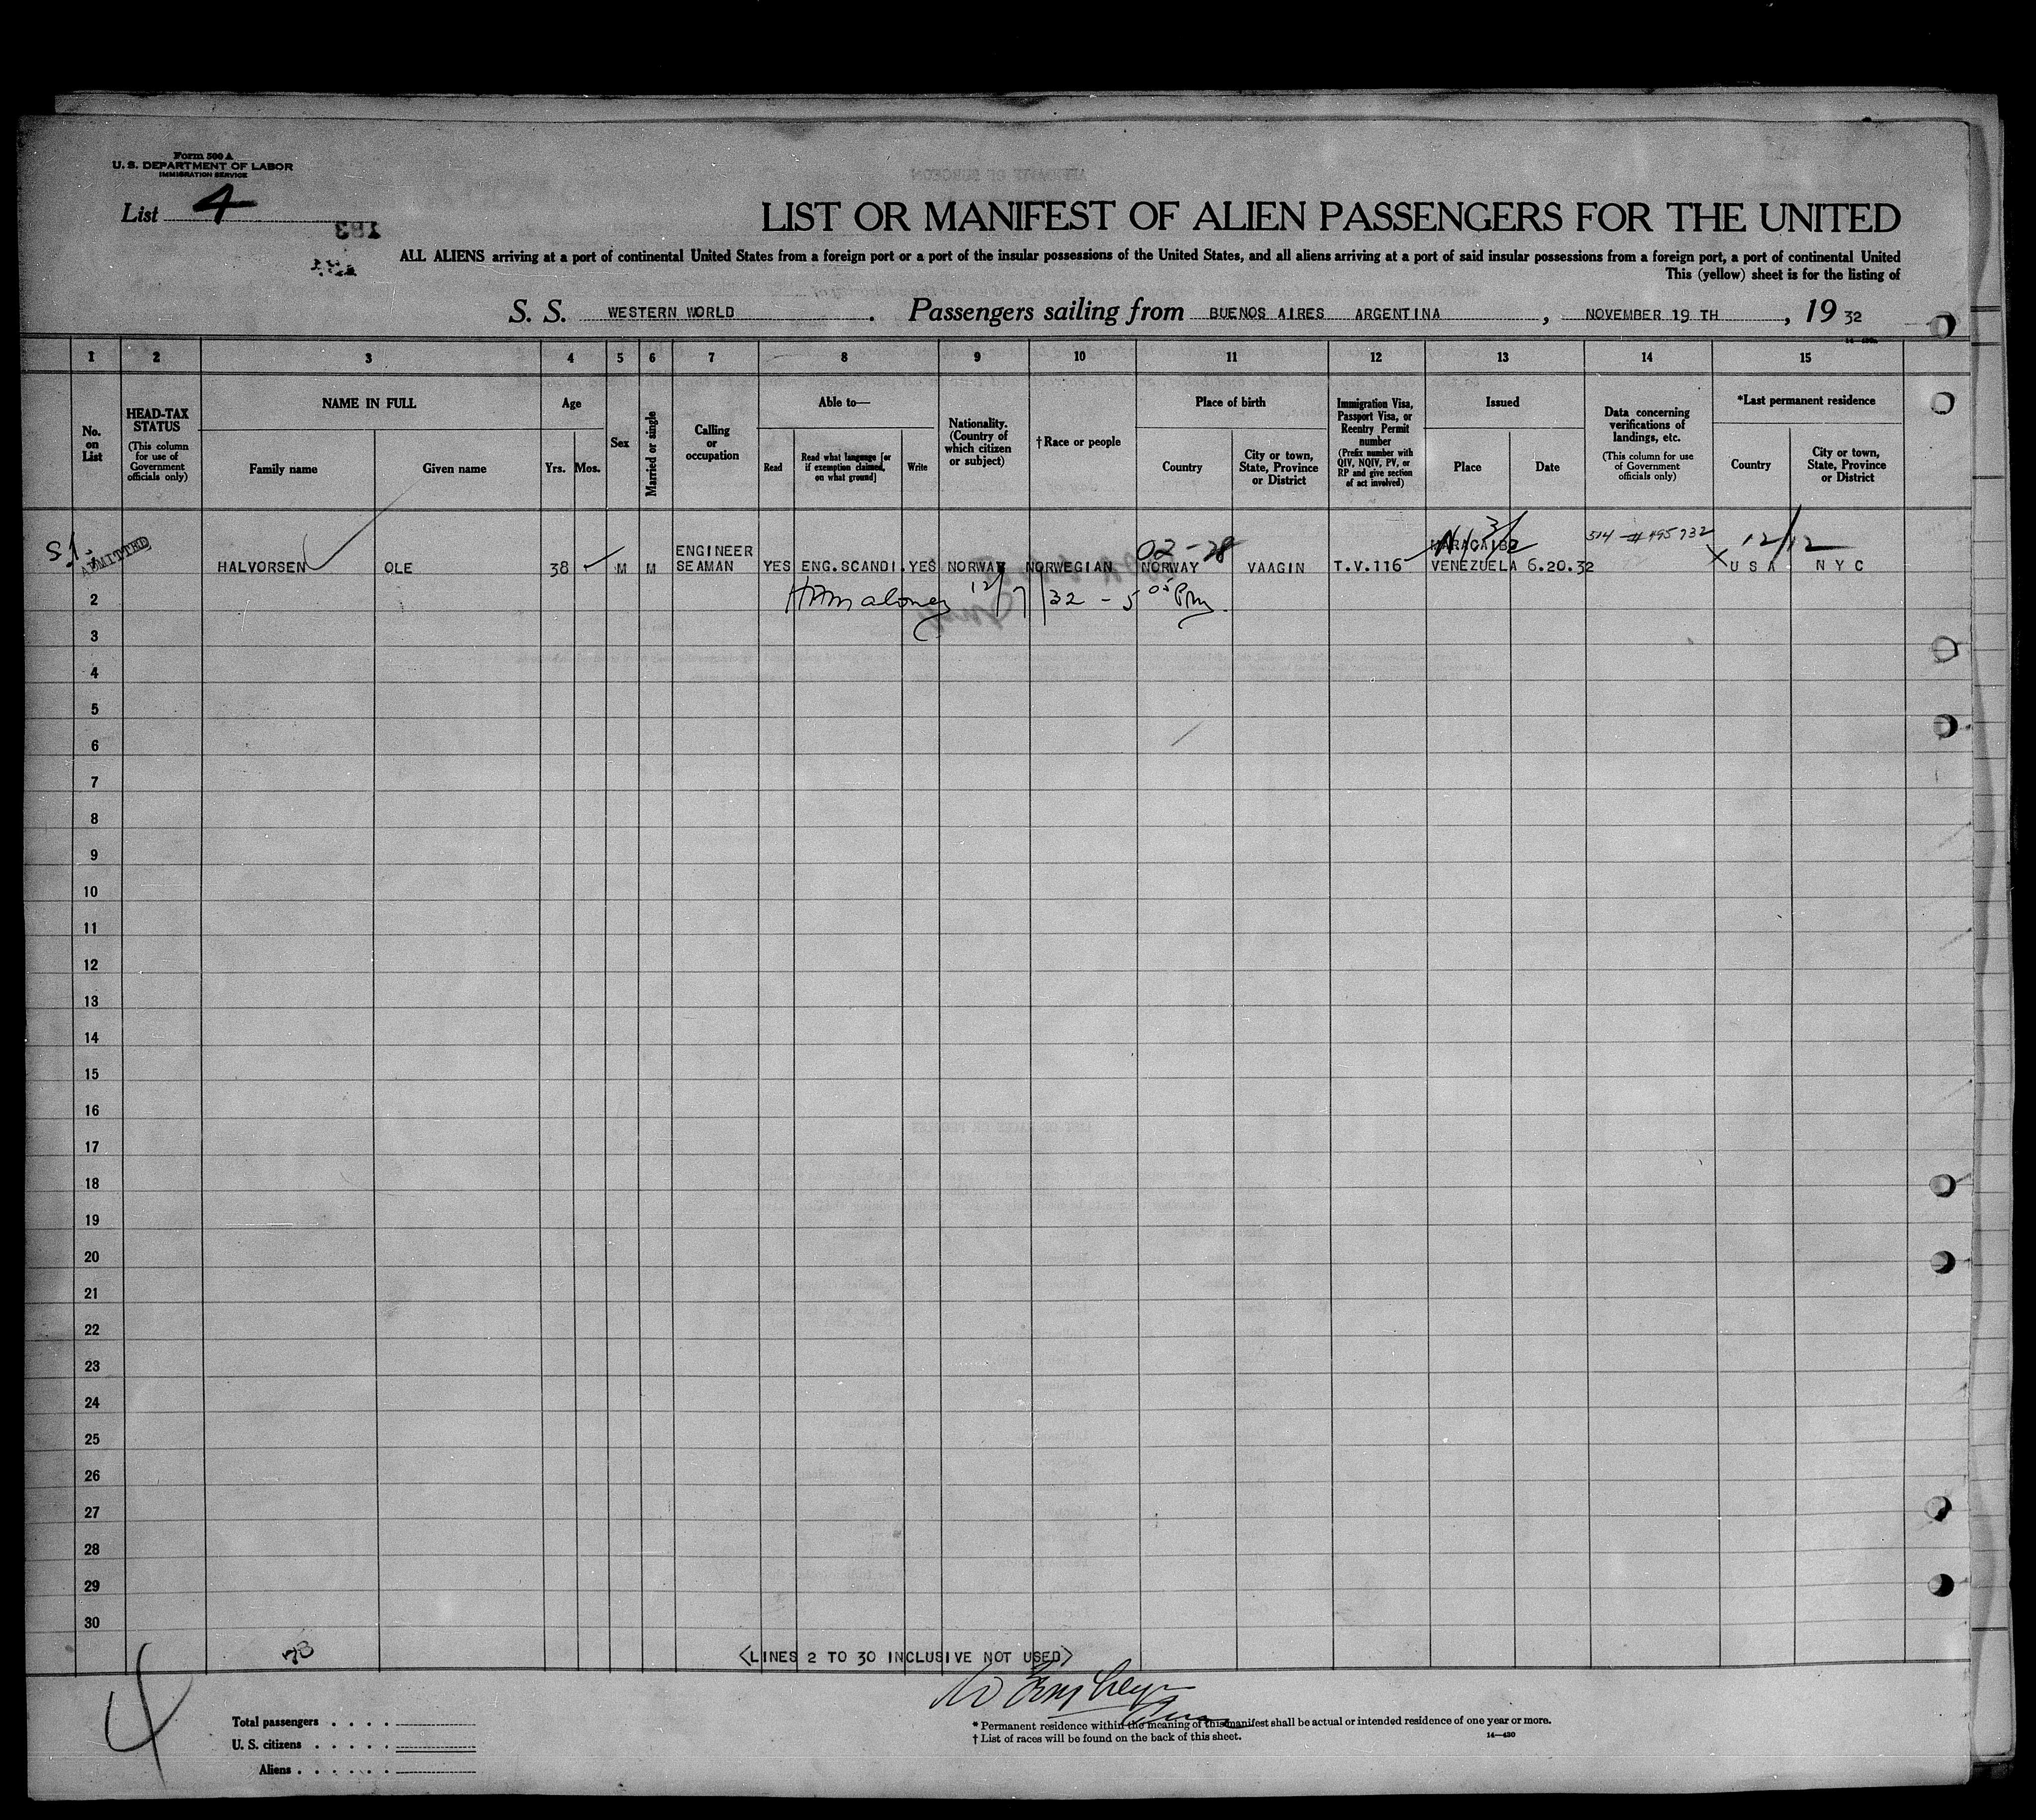 Form 500 A
U. S. DEPARTMENT OF LABOR
IMMIGRATION SERVICE
List 4
LIST OR MANIFEST OF ALIEN PASSENGERS FOR THE UNITED
ALL ALIENS arriving at a port of continental United States from a foreign port or a port of the insular possessions of the United States, and all aliens arriving at a port of said insular possessions from a foreign port, a port of continental United
This (yellow) sheet is for the listing of
S. S. WESTERN WORLD. Passengers sailing from BUENOS AIRES ARGENTINA, NOVEMBER 19 TH, 19 32
1 2 3 4 5 6 7 8 9 10 11 12 13 14 15
No. on List
HEAD-TAX STATUS
(This column for use of Government officials only)
NAME IN FULL
Family name
Given name
Age
Yrs. Mos.
Sex
Married or single
Calling or occupation
Able to—
Read
Read what language [or if exemption claimed, on what ground]
Write
Nationality. (Country of which citizen or subject)
†Race or people
Place of birth
Country
City or town, State, Province or District
Immigration Visa, Passport Visa, or Reentry Permit number
(Prefix number with QIV, NQIV, PV, or RP and give section of act involved)
Issued
Place
Date
Data concerning verifications of landings, etc.
(This column for use of Government officials only)
*Last permanent residence
Country
City or town, State, Province or District
ADMITTED
02-28
514 # 495732
12/12
ENGINEER MARACAIBO
HALVORSEN OLE 38 M M SEAMAN YES ENG.SCANDI. YES NORWAY NORWEGIAN NORWAY VAAGIN T.V.116 VENEZUELA 6.20.32 X U S A N Y C
2 HMmaloney 12/7/32 - 5 05 Pm
3
4
5
6
7
8
9
10
11
12
13
14
15
16
17
18
19
20
21
22
23
24
25
26
27
28
29
30
<LINES 2 TO 30 INCLUSIVE NOT USED>
4
Total passengers . . . .
U. S. citizens . . . . .
Aliens . . . . . .
* Permanent residence within the meaning of this manifest shall be actual or intended residence of one year or more.
† List of races will be found on the back of this sheet.
14—430